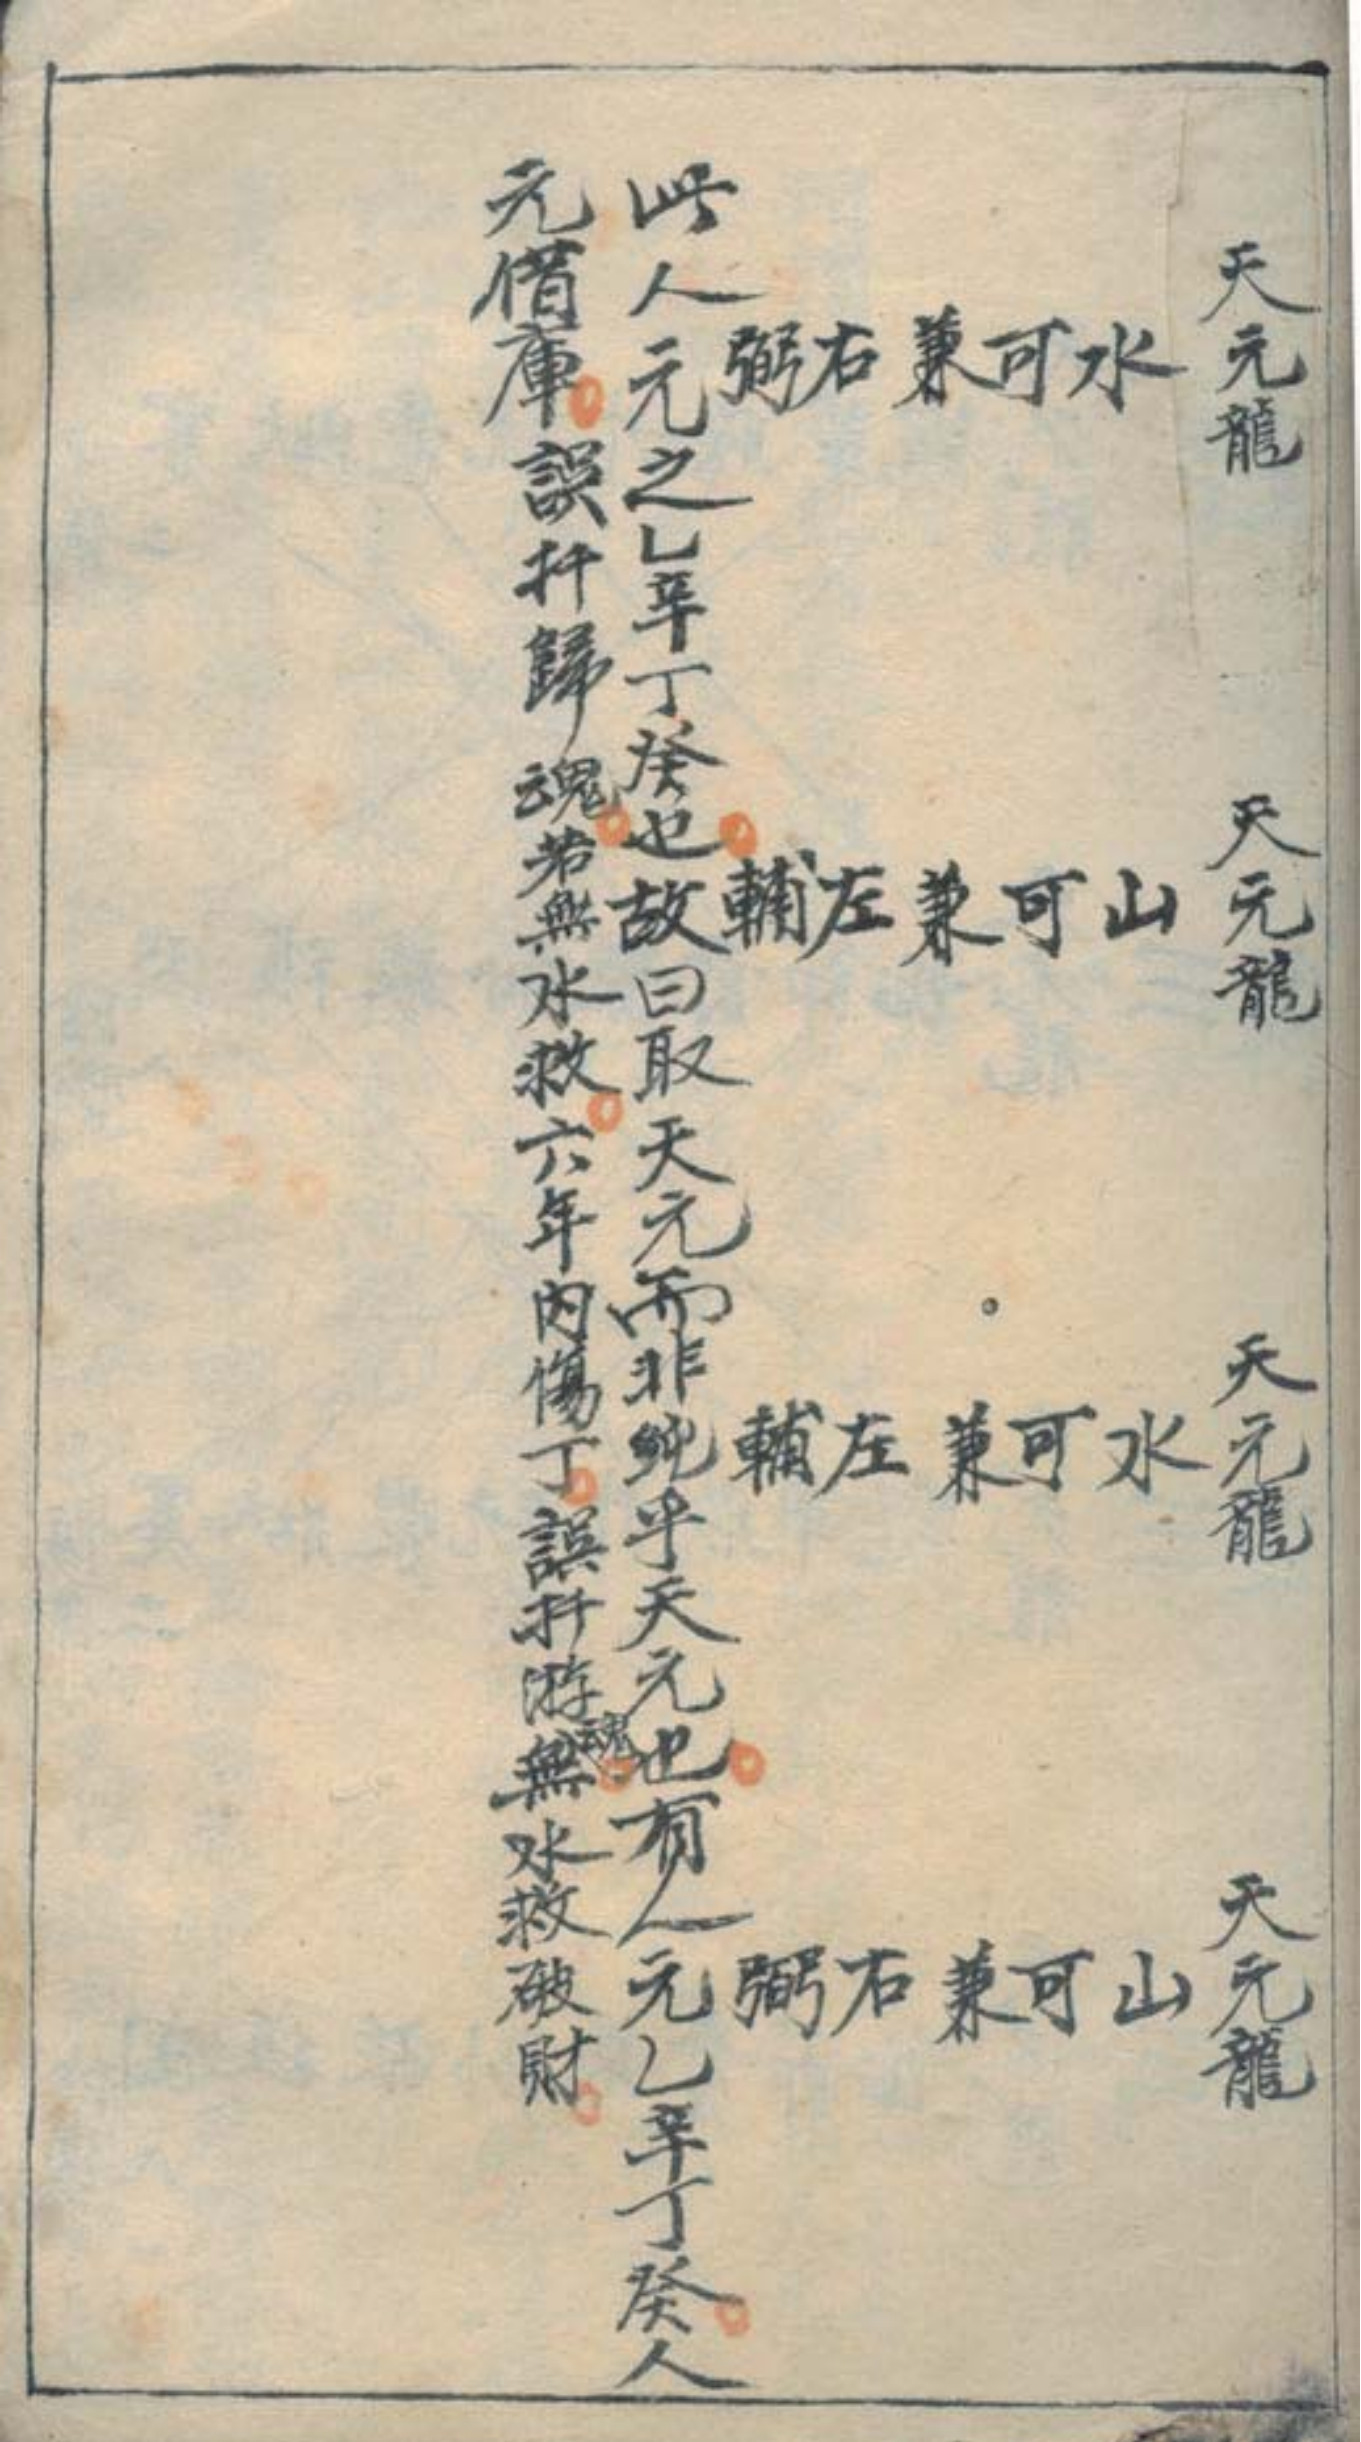 天元龍
水可兼右弼
天元龍
山可兼左輔
天元龍
水可兼左輔
天元龍
山可兼右弼
此人元之乙辛丁癸也。故曰取天元而非純乎天元也。有人元乙辛丁癸。人
元借庫。誤扦歸魂。若無水救。六年內傷丁。誤扦游魂。無水救破財。